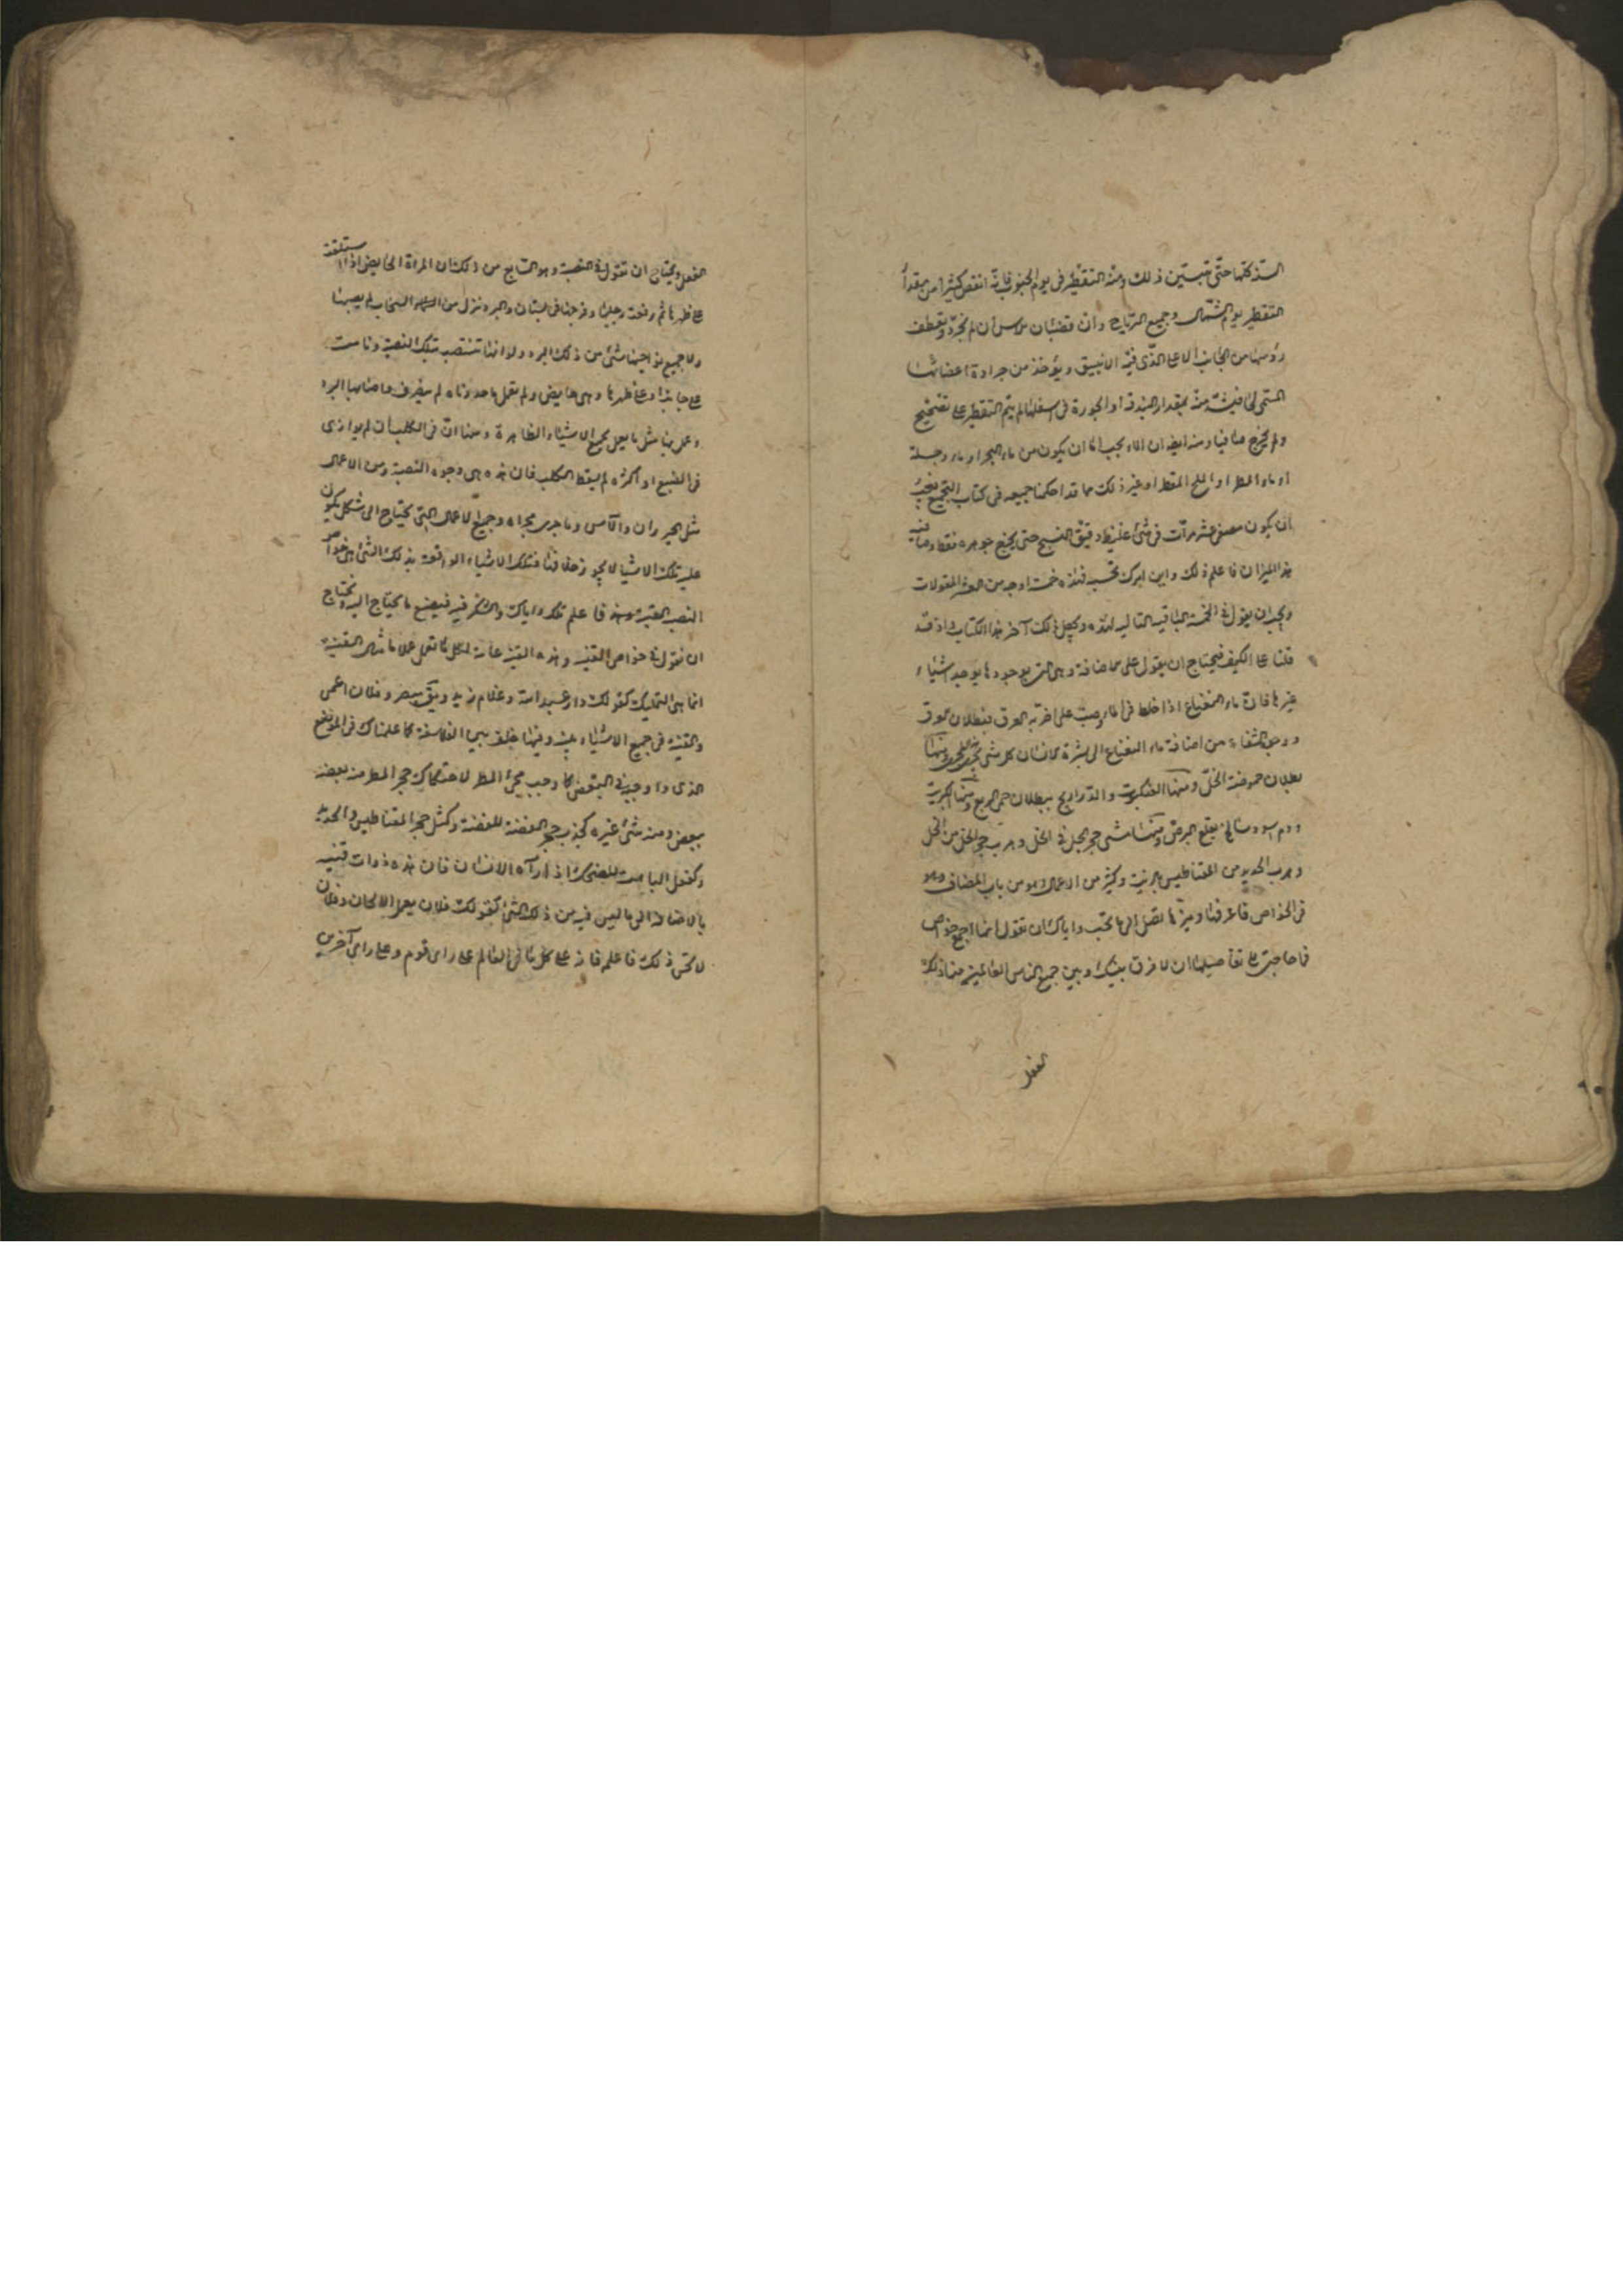 السنة كلها حتى تتبين ذلك ومنه التقطير في يوم الجنوب فانه انقص كثيرا من مقدار
التقطير يوم الشمال وجميع الرياح وان قضبان الآس ان لم تجرد وتقطف
رؤسها من الجانب الاعلى الذي فيه الانبيق ويؤخذ من جرادة اعضائها
منه بمقدار البندقة او الجوزة في اسفلها لم يتم التقطير على تصحيح
ولم يخرج صافيا ومنه ايضا ان الماء يجب اما ان يكون من ماء البحر او ماء دجلة
او ماء المطر او الملح المقطر او غير ذلك مما قد احكمنا جميعه في كتاب التجميع فيجب
ان يكون مصفى عشر مرات في شئ غليظ دقيق النسج حتى يجتمع جوهره فقط وصافيه
هذا الميزان فاعلم ذلك وابن امرك بحسبه فهذه خمسة اوجه من العشر المقولات
ويجب ان يقول في الخمسة الباقية التالية لهذه ويجعل ذلك آخر هذا الكتاب اذ قد
قلنا على الكيف فيحتاج ان يقول على مضافة وهي التي بوجودها يوجد اشياء
غيرها فان ماء النعناع اذا خلط في الماء وصب على اخر به العرق فبطلان العرق
ووجود الشفاء من اضافة ماء النعناع الى بشرة الانسان
بطلان حموضة الخل ومنها العنكبوت والذراريح ببطلان حمى الربع ومنها الكبريت
ودم اسود سالخ بقلع البرص ومنها مشي حجر الخل في الخل وهرب حجر الخل من الخل
وهرب الحديد من المقناطيس وكثير من الاعمال وهو من باب المضاف وهو
في الخواص فاعرفها وميزها تصل الى ما تحب واياك ان تقول انما اجمع خواص
فما حاجتي الى تفاصيلها ان لا فرق بينك وبين جميع الناس العالمين منا ذلك
الفعل
الفعل ويحتاج ان نقول في النصبة وهو التابع من ذلك ان المرأة الحايض اذا استلقت
على ظهرها ثم رفعت رجليها وفرجها في بستان والبرد نزل من السماء السحاب لم يصبها
ولا جميع نواحيها شئ من ذلك البرد ولو انها تنتصب تلك النصبة ونامت
على جانبها او على ظهرها وهي حايض ولم تعمل ما حددناه لم ينصرف واصابها البرد
وعمل بها مثل ما يعمل بجميع الاشياء الظاهرة ومنها ان في الكلب ان لم يوازى
في الضبع او القمر لم يسقط الكلب فان هذه هي وجوه النصبة ومن الاعمال
مثل الخيزران والآس وما جرى مجراه وجميع الاعمال التي تحتاج الى شكل تكون
عليه تلك الاشياء لا يجوز خلافها فتلك الاشياء الواقعة بذلك الشئ هي خواص
النصب القينة منه فاعلم ذلك واياك والشك فيه فيضيع ما يحتاج اليه ويحتاج
ان نقول في خواص القنية وهذه القنية عامة لكل ما تعمل علاما شاء القنية
انما هي التمليك كقولك دار عبد الله وغلام زيد ويق بصر وفلان اعمى
والقنية في جميع الاشياء بينة وفيها خلف بين الفلاسفة كما علمناك في الموضع
الذى داوجب في البعض كما وجب مجئ المطر لاحتكاك حجر المطر منه بعضه
ببعض ومنه شئ غيره كجذب حجر الفضة للفضة وكمثل حجر المقناطيس والحديد
وكفعل الباهت للضحك اذا رآه الانسان فان هذه ذوات قنية
بالاضافة الى ما ليس فيه من ذلك الشئ كقولك فلان يعمل الالحان وفلان
لا يحسن ذلك فاعلم فانه على كل ما في العالم على راى قوم وعلى راى آخرين